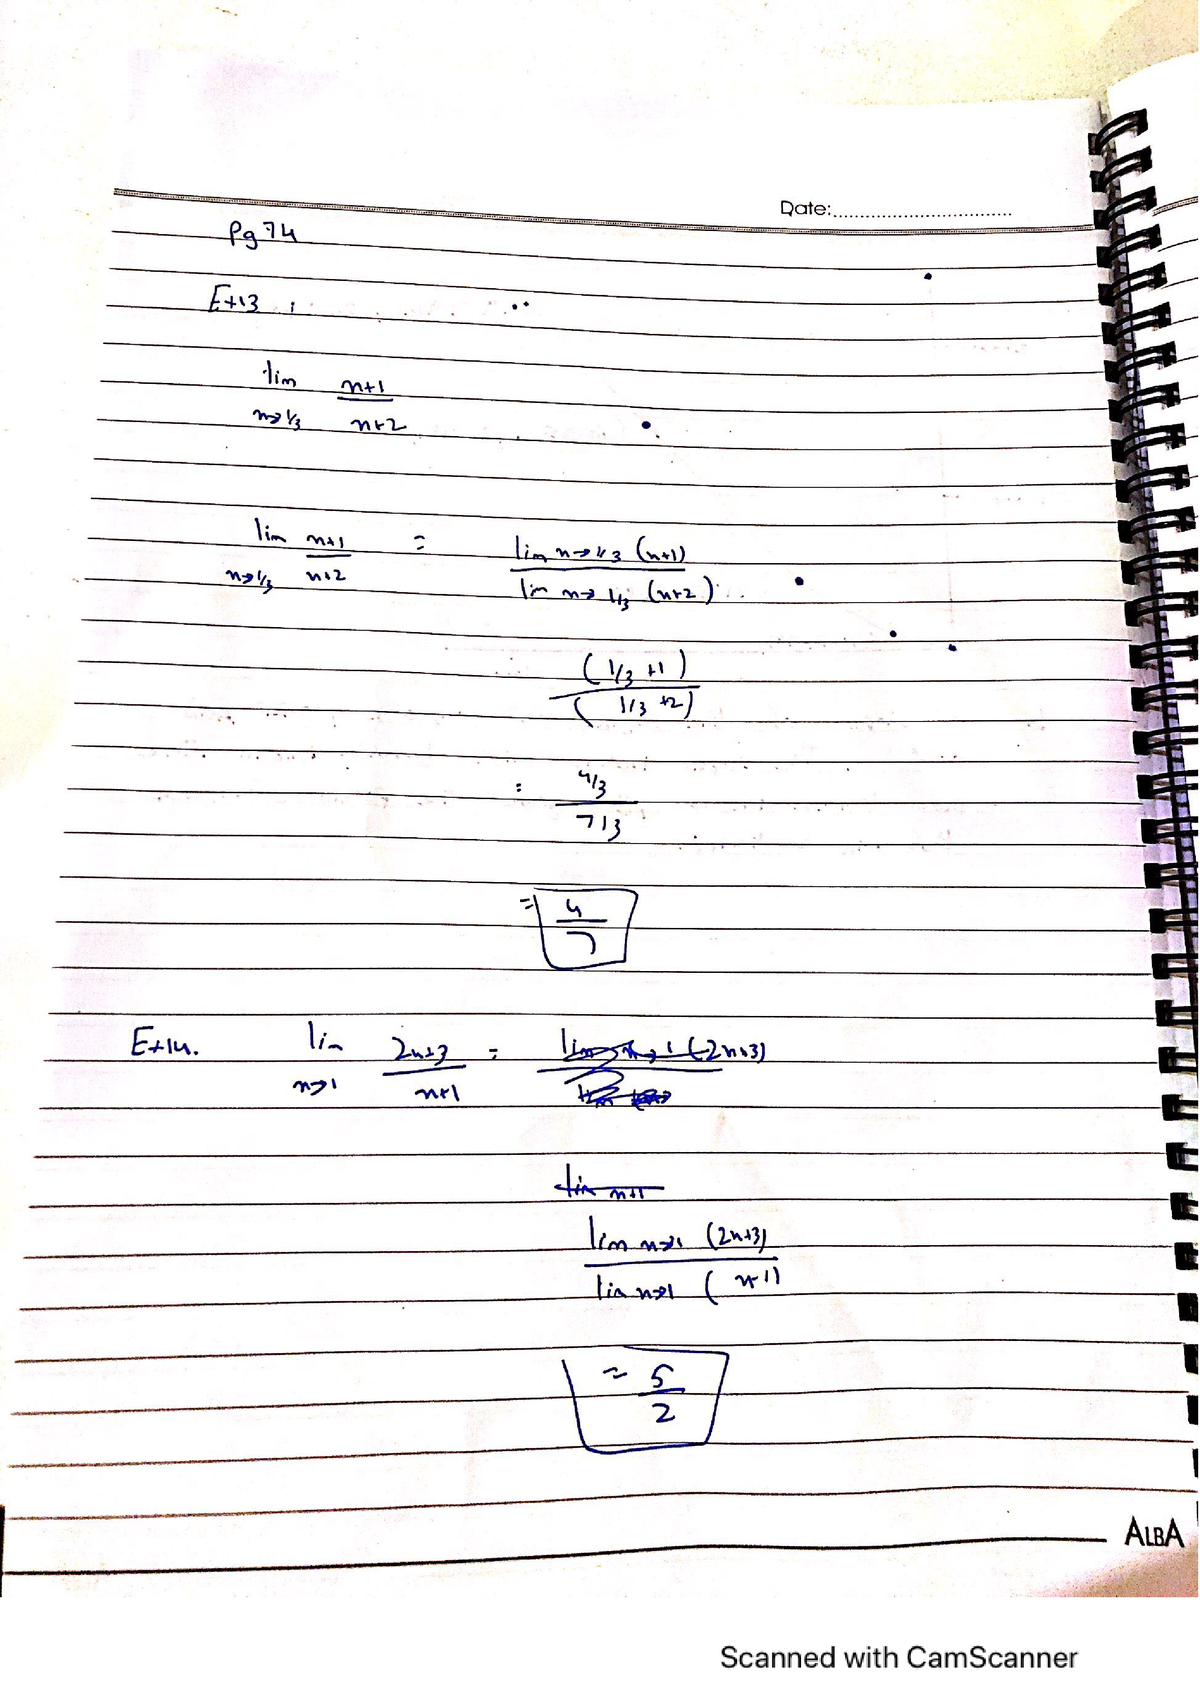 Date:..............................
Pg 74
Ex13 :
lim n+1
n→1/3 n+2
lim n+1 = lim n→1/3 (n+1)
n→1/3 n+2 lim n→1/3 (n+2)
(1/3 +1)
( 1/3 +2)
= 4/3
7/3
= 4
7
Ex14. lim 2n+3 = lim n→1 (2n+3)
n→1 n+1
lim n+1
lim n→1 (2n+3)
lim n→1 ( n+1)
= 5
2
ALBA
Scanned with CamScanner